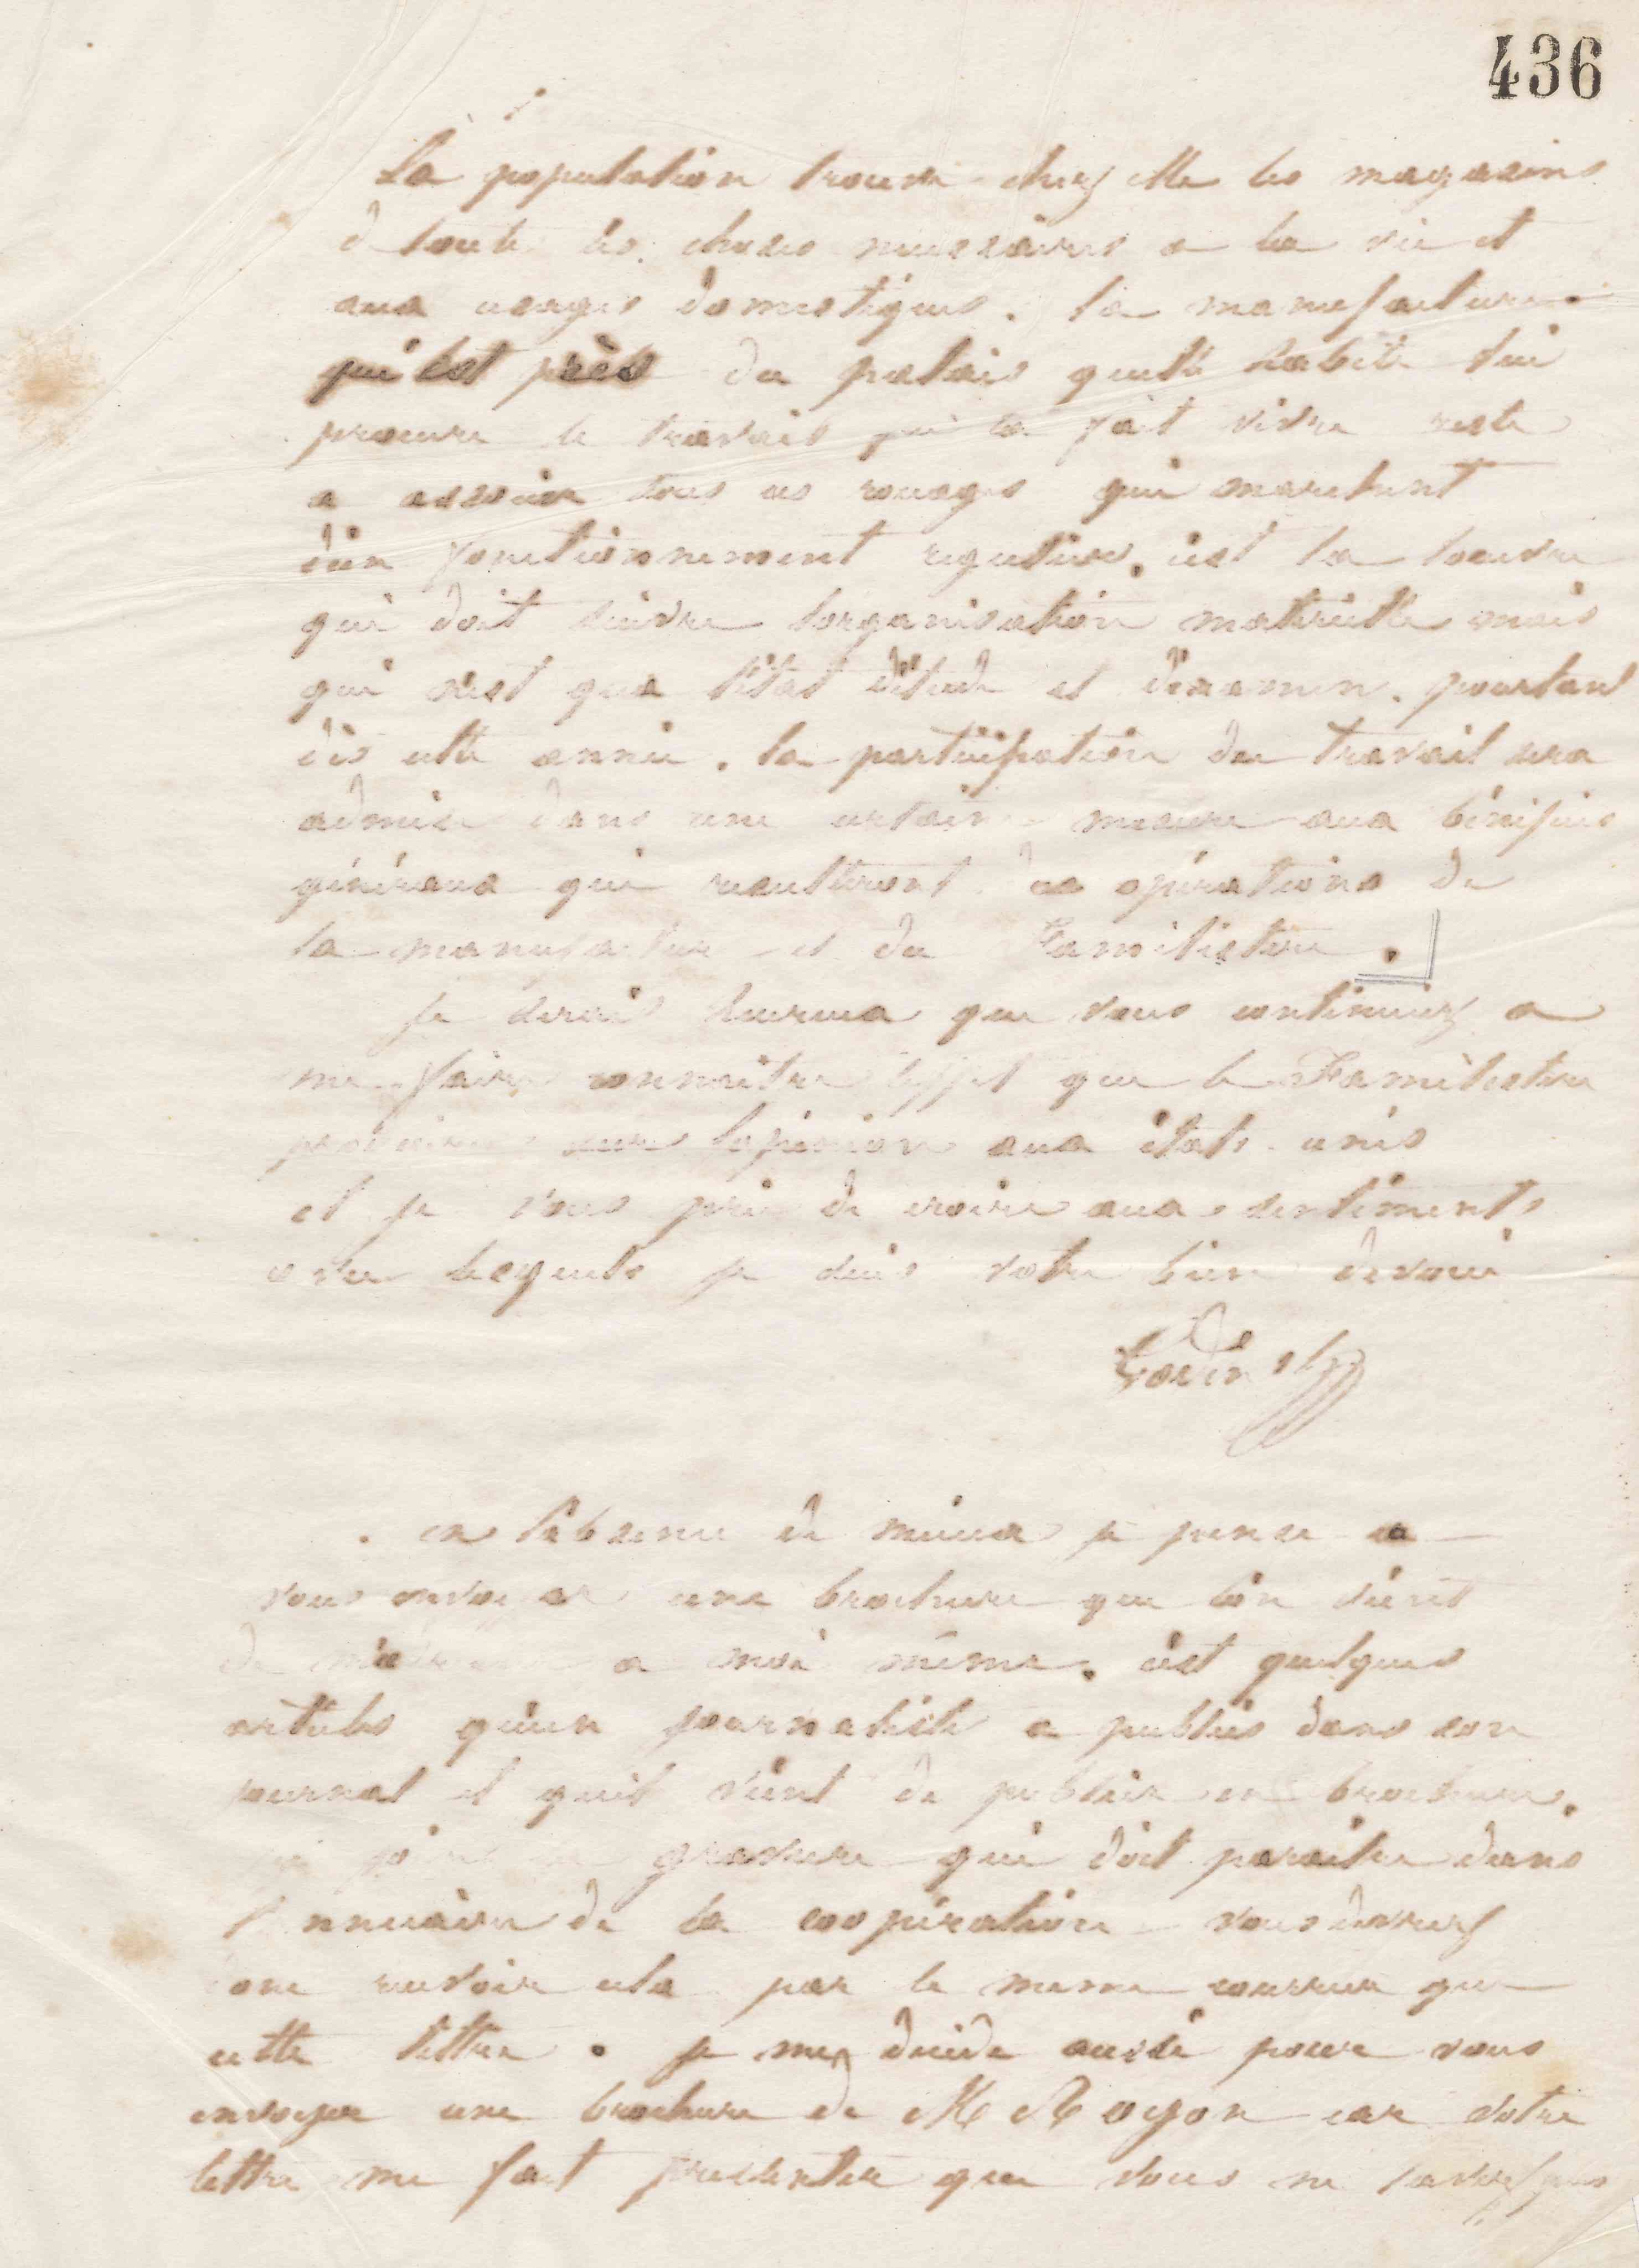 436
La population trouve chez elle les magasins
de toute les choses necessaires a la vie et
aux usages domestiques. la manufacture
qui est près du palais quelle habite lui
procure le travail qui la fait vivre reste
a associer tous ces rouages qui marchent
d'un fonctionnement regulier. c'est la
qui doit suivre lorganisation materielle mais
qui n'est qua l'état d'étude et d'examen. pourtant
dès cette année. la participation du travail sera
admise dans une certaine mesure aux bénéfices
généraux qui resulteront des opérations de
la manufacture et du Familistere.
je serais heureux que vous continuiez a
me faire connaitre l'effet que le Familistere
sur lopinion aux états-unis
et je vous prie de croire aux sentiments
avec lesquels je suis votre bien devoué
Godin
en l'absence de mieux je pense a
vous envoyer une brochure que l'on vient
de a moi même. c'est quelques
articles qu'un journaliste a publiés dans son
journal et quil vient de publier en brochure.
gravure qui doit paraitre dans
l'annuaire de la coopération vous devrez
donc recevoir cela par le meme courrier que
cette lettre. je me décide aussi pour vous
envoyer une brochure de M Royon car votre
lettre me fait pressentir que vous ne lavez pas